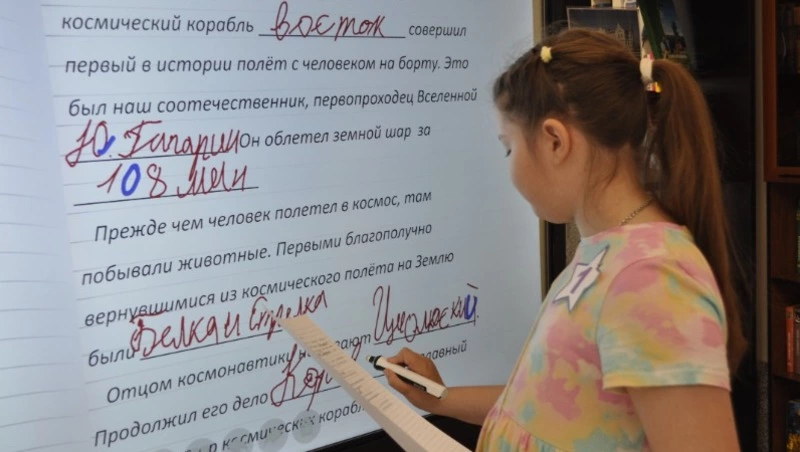 космический корабль восток совершил
первый в истории полёт с человеком на борту. Это
был наш соотечественник, первопроходец Вселенной
Ю. Гагарин Он облетел земной шар за
108 мин
Прежде чем человек полетел в космос, там
побывали животные. Первыми благополучно
вернувшимися из космического полёта на Землю
были Белка и Стрелка
Отцом космонавтики
Продолжил его дело
космических
1